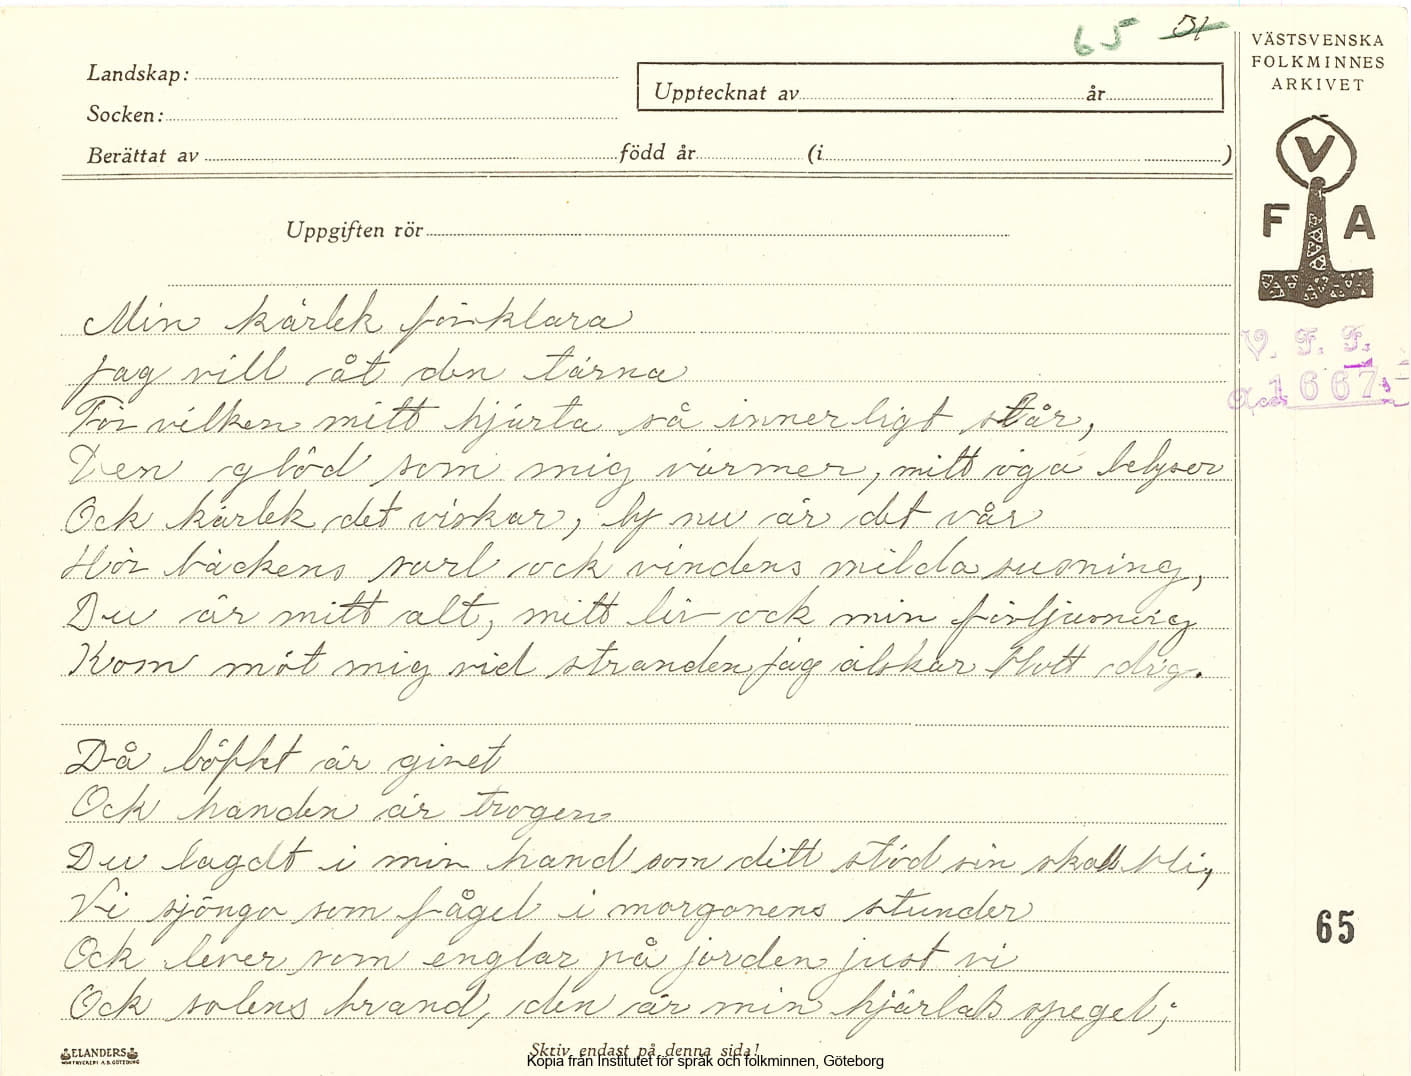 65 51
VÄSTSVENSKA
FOLKMINNES
ARKIVET
Landskap:
Socken:
Upptecknat av år
Berättat av född år (i )
Uppgiften rör
V
F A
V. F. F.
Acc. 1667
Min kärlek förklara
Jag vill åt den tärna
För vilken mitt hjärta så innerligt står,
Den glöd som mig värmer, mitt öga belyser
Ock kärlek det viskar, ly nu är det vår
Hör bäckens sorl ock vindens milda susning,
Du är mitt alt, mitt liv ock min förljusning
Kom möt mig vid stranden jag älskar blott dig.
Då löftet är givet
Ock handen är trogen
Du lagdt i min hand som ditt stöd sin skall bli,
Vi sjönga som fågel i morgonens stunder
Ock lever som englar på jorden just vi
Ock solens brand, den är min hjärtats spegel;
65
ELANDERS
Skriv endast på denna sida!
Kopia från Institutet för språk och folkminnen, Göteborg